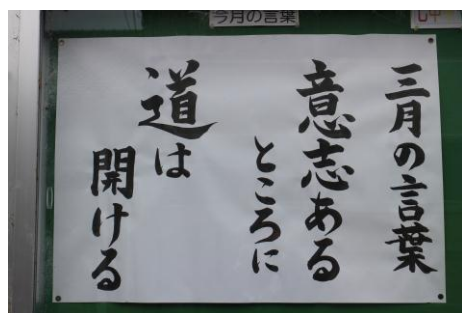 今月の言葉
三月の言葉
意志ある
ところに
道は
開ける